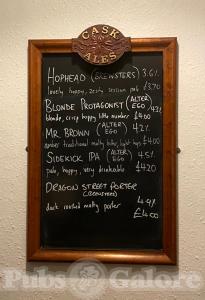 CASK
ALES
HOPHEAD (BREWSTERS) 3.6%
lovely hoppy, zesty session pale £3.70
BLONDE PROTAGONIST (ALTER EGO)
blonde, crisp hoppy little number £4.00
MR. BROWN (ALTER EGO) 4.2%
amber traditional malty bitter, light hops £4.00
SIDEKICK IPA (ALTER EGO) 4.5%
pale, hoppy, very drinkable £4.20
DRAGON STREET PORTER
dark roasted malty porter
£4.00
Pubs Galore